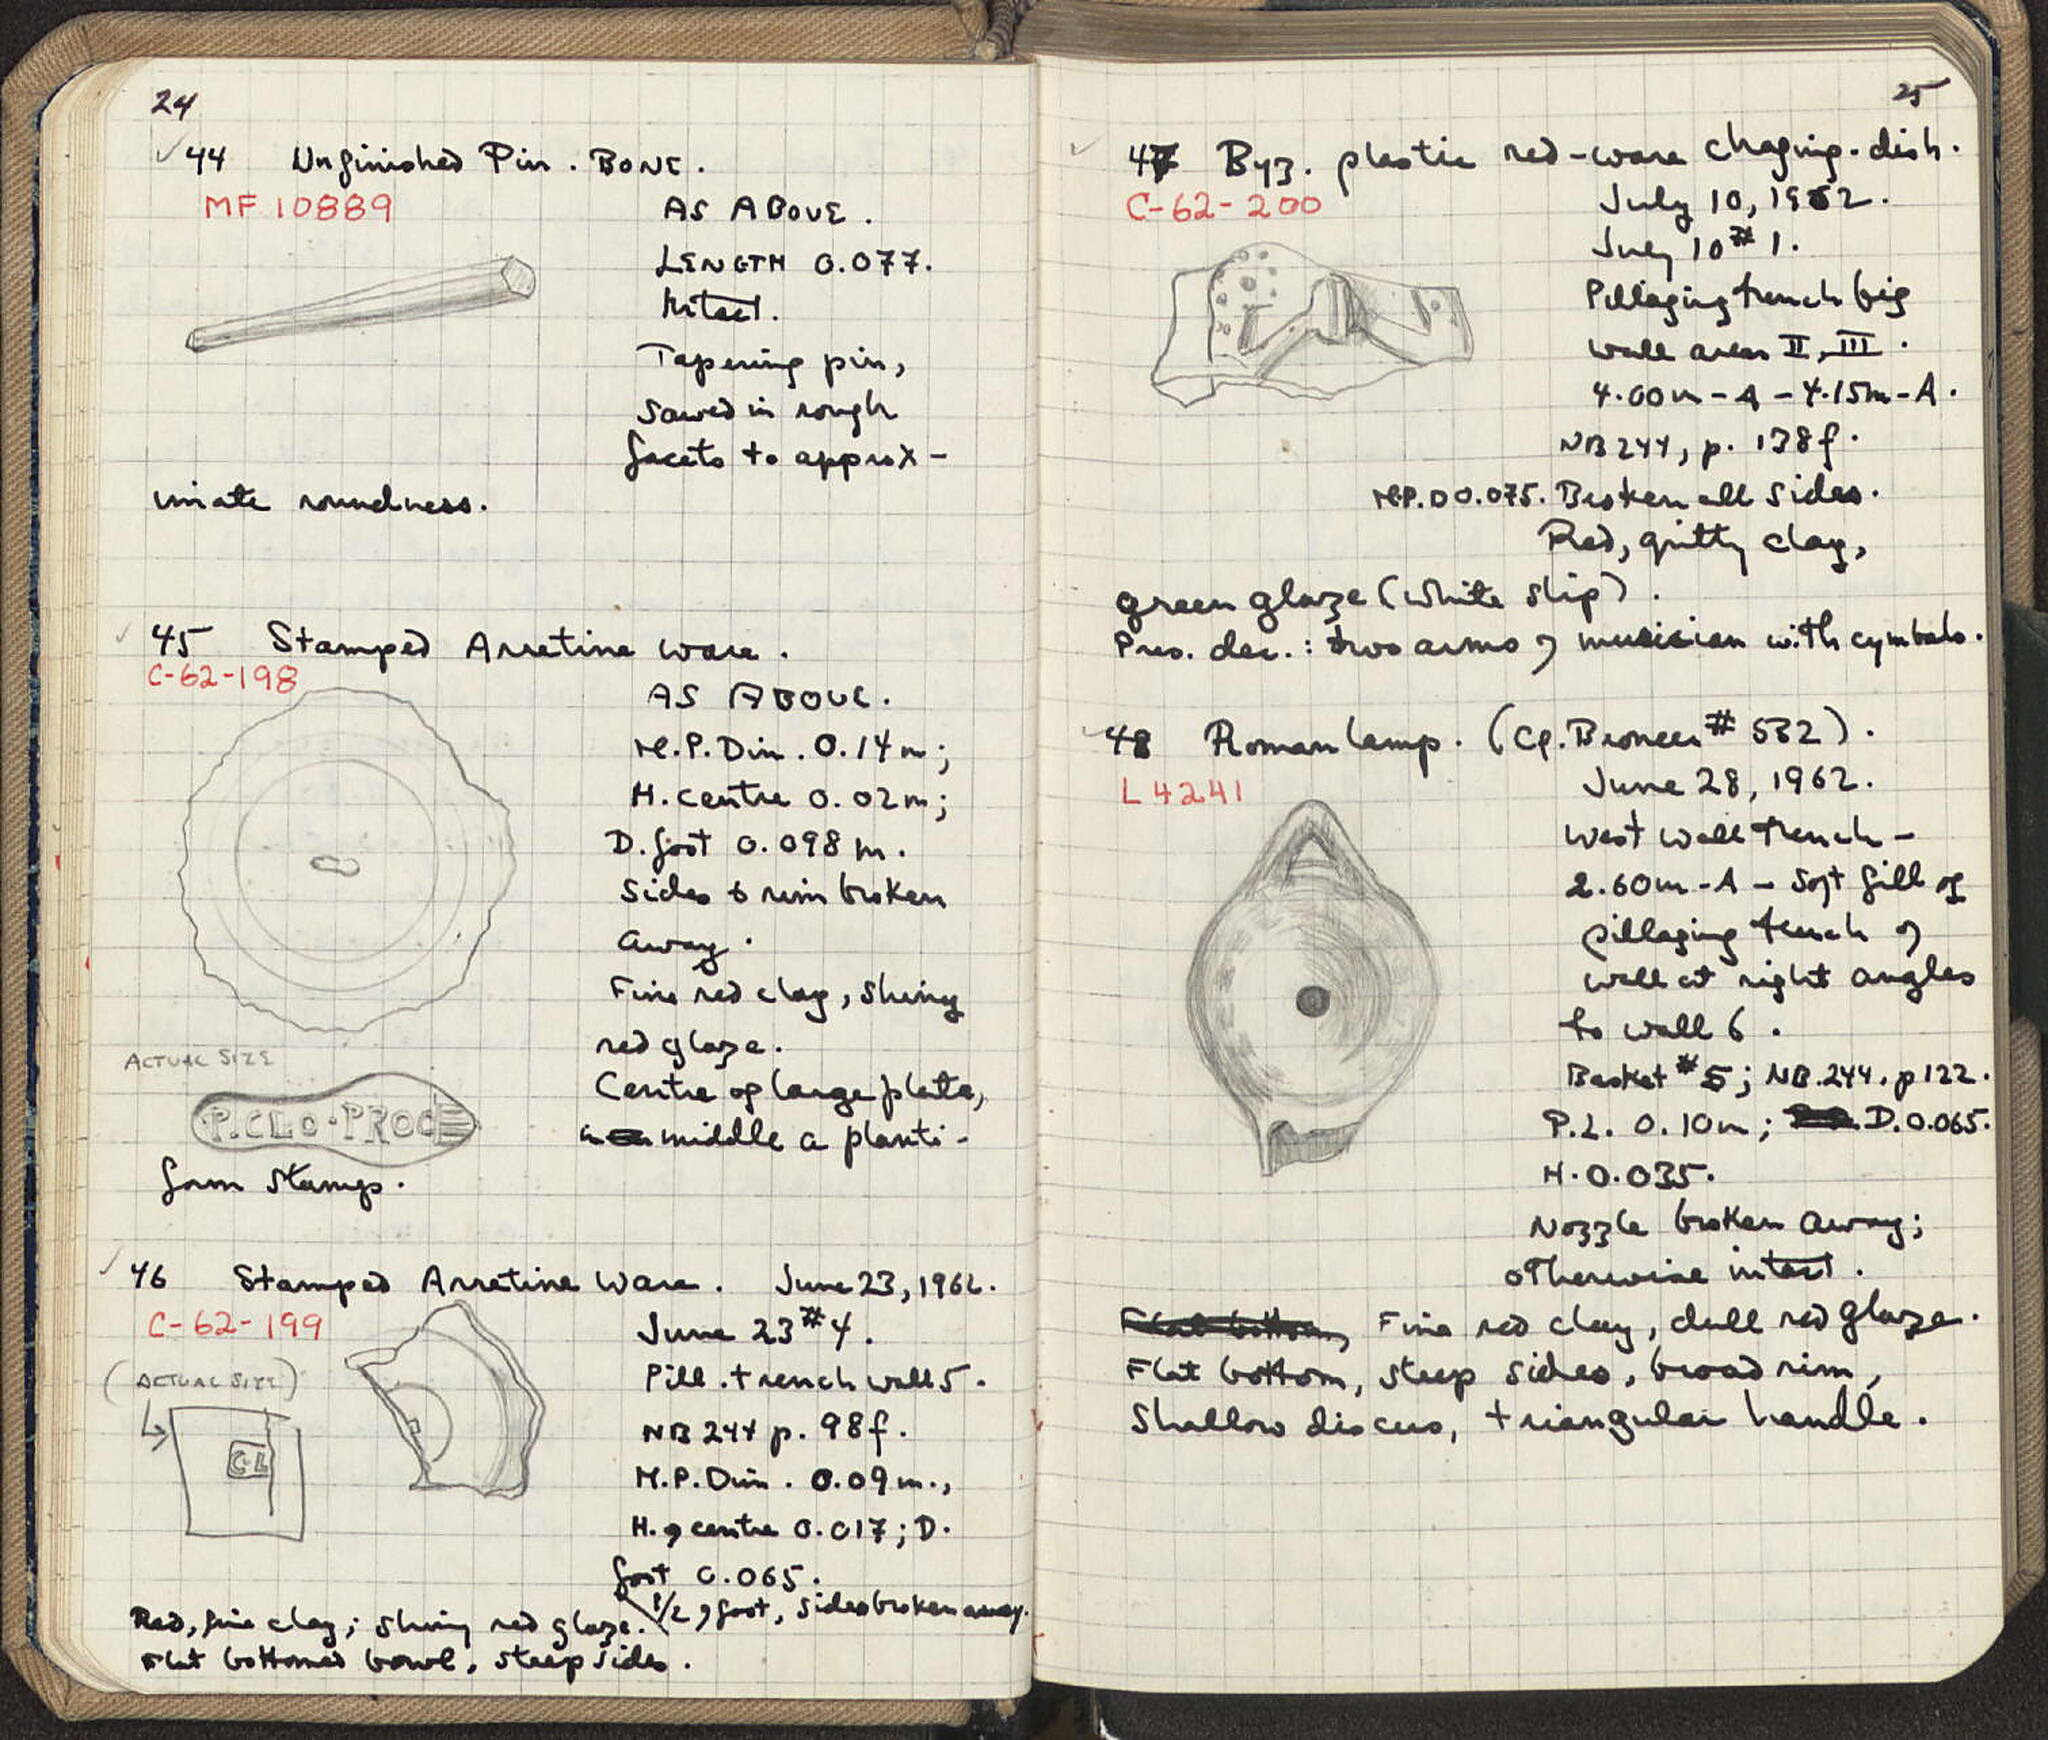 24
44 Unfinished Pin. BONE.
MF 10889
AS ABOVE.
LENGTH 0.077.
Intact.
Tapering pin,
sawed in rough
facets to approx-
imate roundness.
45 Stamped Arretine ware.
C-62-198
AS ABOVE.
M.P.Dim. 0.14m;
H. centre 0.02m;
D. foot 0.098m.
Sides & rim broken
away.
Fine red clay, shiny
red glaze.
Centre of large plate,
in middle a planti-
form stamp.
ACTUAL SIZE
P.CLO·PROC
46 Stamped Arretine Ware. June 23, 1962.
C-62-199
June 23 #4.
Pill. trench wall 5.
NB 244 p. 98f.
M.P.Dim. 0.09m.,
H. of centre 0.017; D.
foot 0.065.
1/2 of foot, sides broken away.
(ACTUAL SIZE)
CL
Red, fine clay; shiny red glaze.
Flat bottomed bowl, steep sides.
25
47 Byz. plastic red-ware chafing-dish.
C-62-200
July 10, 1962.
July 10 #1.
Pillaging trench big
wall areas II, III.
4.00m-A - 4.15m-A.
NB 244, p. 138f.
M.P.D 0.075. Broken all sides.
Red, gritty clay,
green glaze (white slip).
Pres. dec.: two arms of musician with cymbals.
48 Roman lamp. (Cp. Broneer # 532).
L 4241
June 28, 1962.
West wall trench -
2.60m-A - soft fill of
pillaging trench of
wall at right angles
to wall 6.
Basket #5; NB.244. p 122.
P.L. 0.10m; D.0.065.
H. 0.035.
Nozzle broken away;
otherwise intact.
Flat bottom, Fine red clay, dull red glaze.
Flat bottom, steep sides, broad rim,
shallow discus, triangular handle.